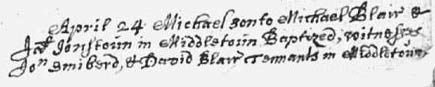 April 24 Michael son to Michael Blair &
Jonstoun in Middletoun Baptized, witnesses
Jon Smiberd, & David Blair Tennants in Middletoun